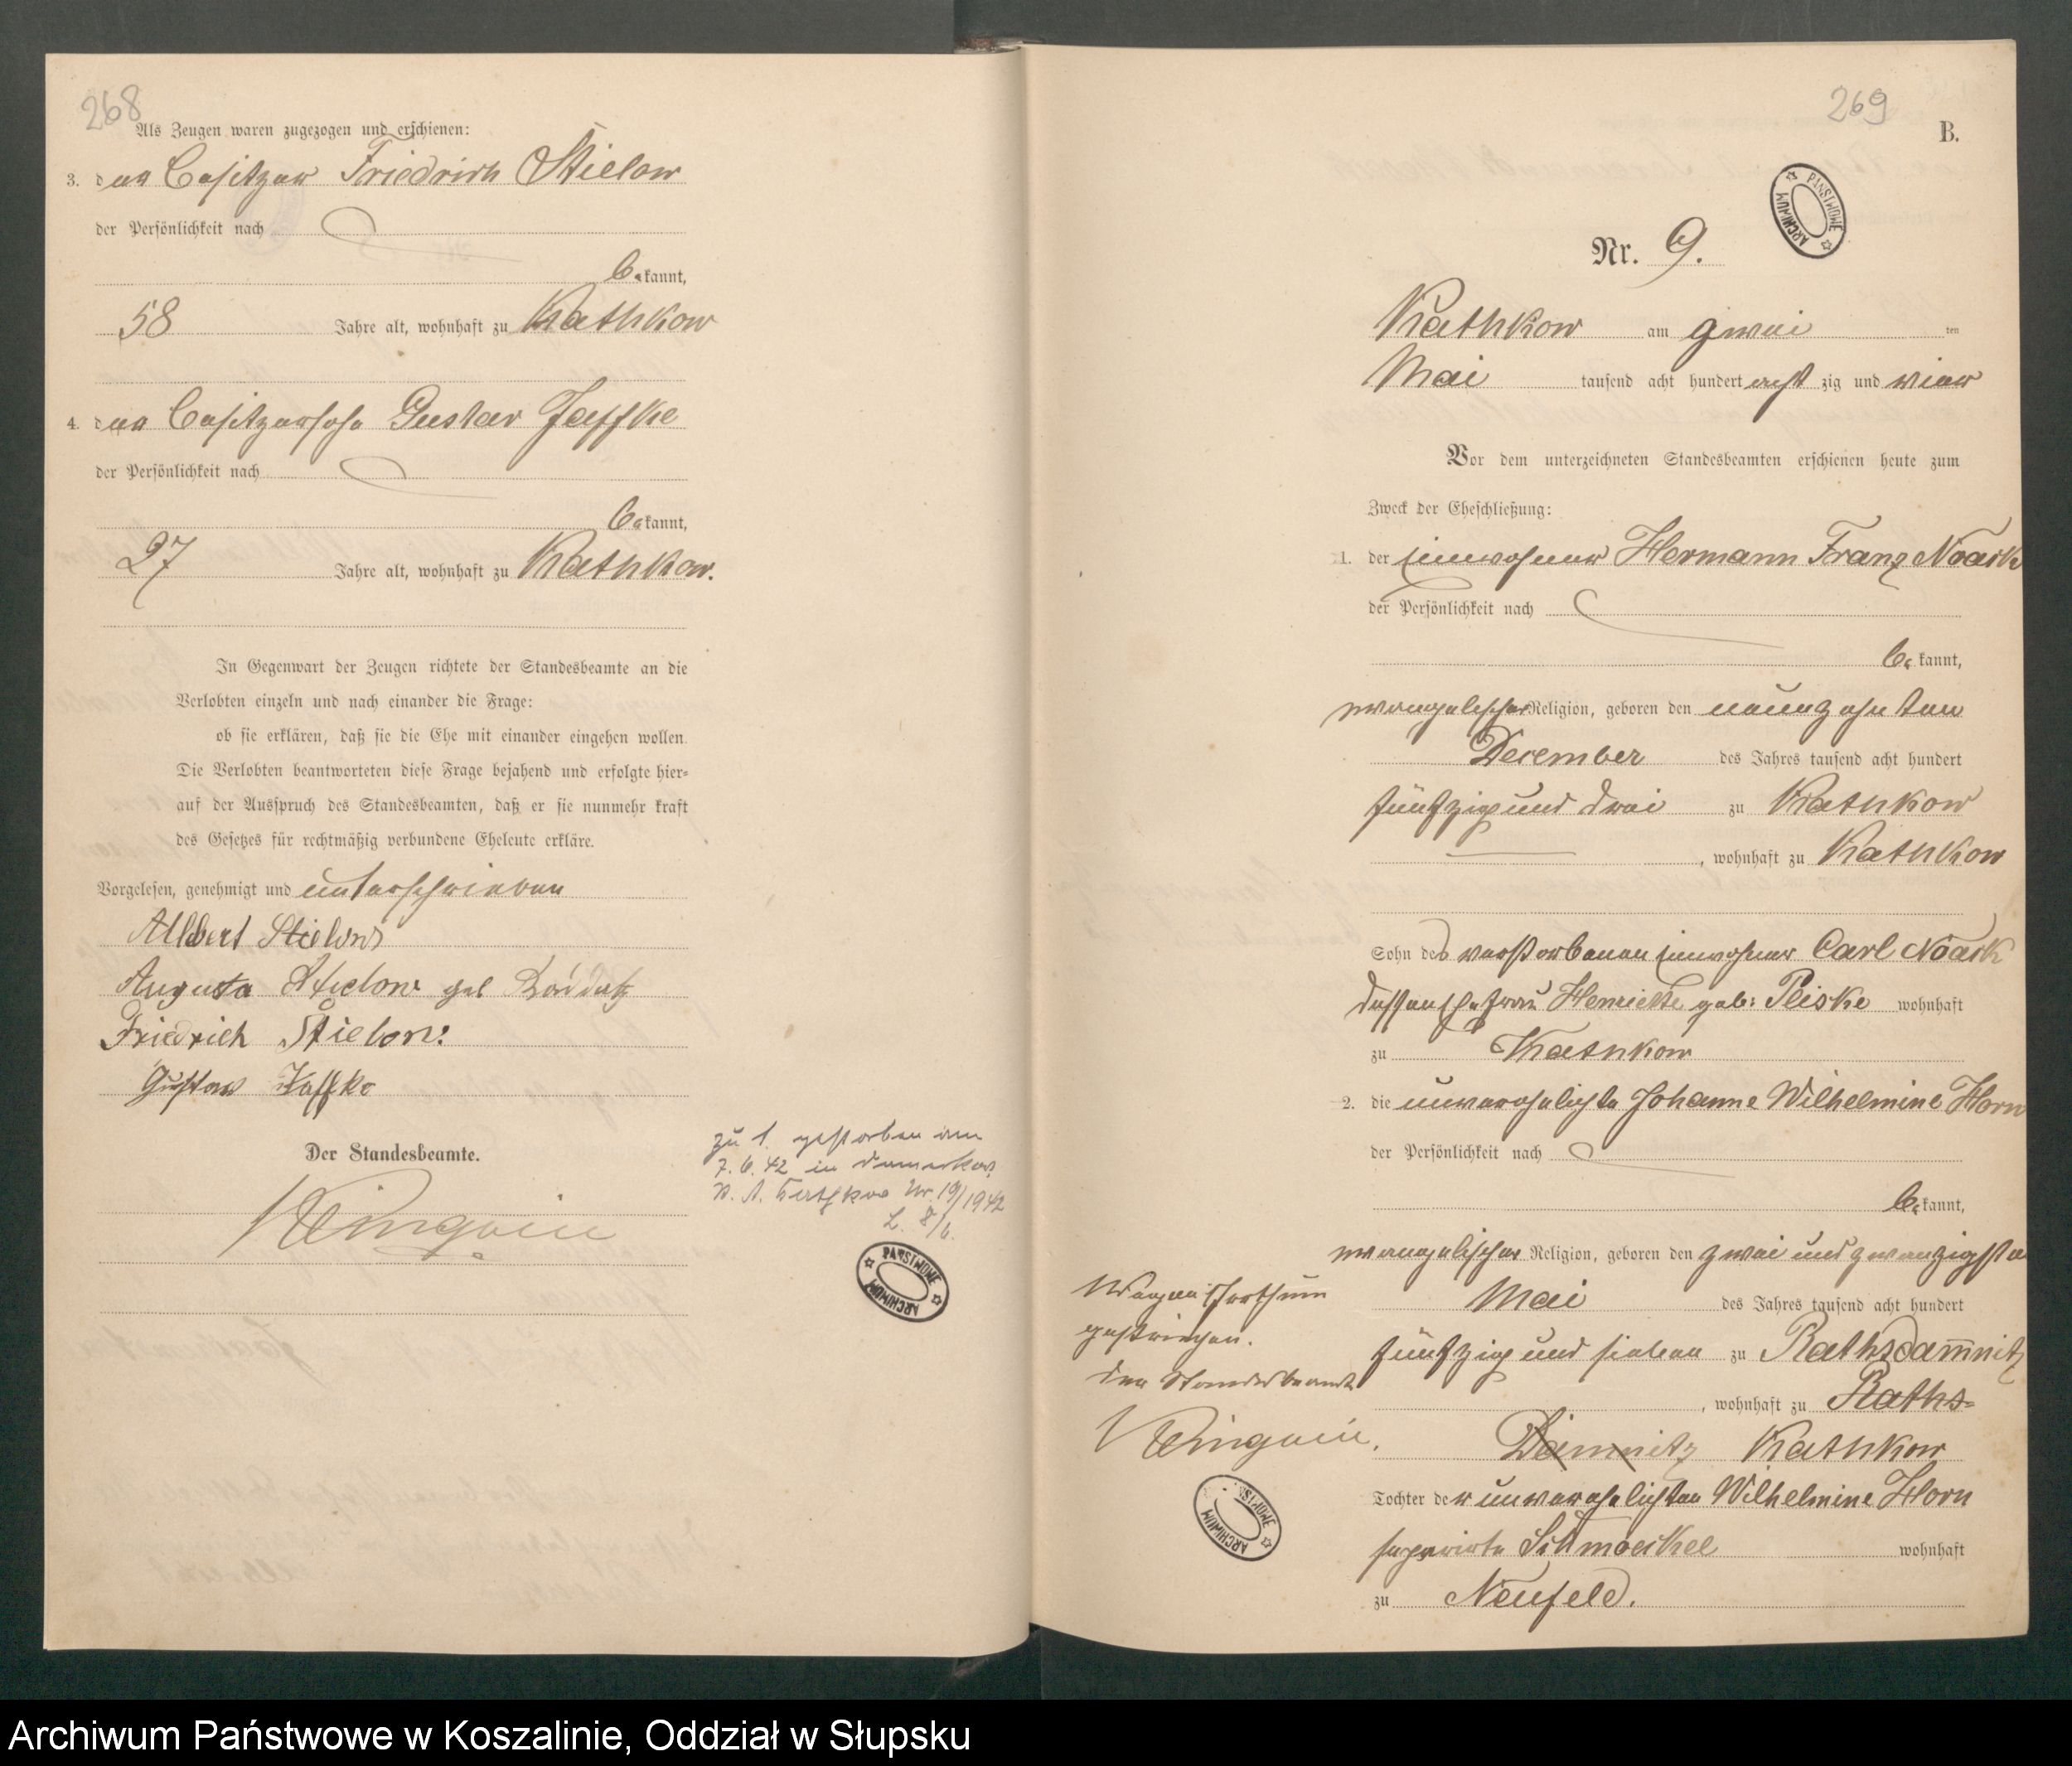 268
Als Zeugen waren zugezogen und erschienen:
3. der Besitzer Friedrich Stielow
der Persönlichkeit nach
bekannt,
58 Jahre alt, wohnhaft zu Kathkow
4. der Besitzersohn Gustav Jaffke
der Persönlichkeit nach
bekannt,
27 Jahre alt, wohnhaft zu Kathkow.
In Gegenwart der Zeugen richtete der Standesbeamte an die
Verlobten einzeln und nach einander die Frage:
ob sie erklären, daß sie die Ehe mit einander eingehen wollen.
Die Verlobten beantworteten diese Frage bejahend und erfolgte hier-
auf der Ausspruch des Standesbeamten, daß er sie nunmehr kraft
des Gesetzes für rechtmäßig verbundene Eheleute erkläre.
Vorgelesen, genehmigt und unterschrieben
Albert Stielow
Augusta Stielow geb
Friedrich Stielow.
Gustav Jaffke
Der Standesbeamte.
zu 1. gestorben am
7. 6. 42 in
Nr. 19/1942
L. 8/6.
PAŃSTWOWE ARCHIWUM
269
B.
PAŃSTWOWE ARCHIWUM
Nr. 9.
Kathkow am zwei ten
Mai tausend acht hundert acht zig und vier
Vor dem unterzeichneten Standesbeamten erschienen heute zum
Zweck der Eheschließung:
1. der Einwohner Hermann Franz Noack
der Persönlichkeit nach
bekannt,
evangelischer Religion, geboren den neunzehnten
December des Jahres tausend acht hundert
fünfzig und drei zu Kathkow
, wohnhaft zu Kathkow
Sohn des verstorbenen Einwohner Carl Noack
dessen Ehefrau Henriette geb: Pliske wohnhaft
zu Kathkow
2. die unverehelichte Johanne Wilhelmine Horn
der Persönlichkeit nach
bekannt,
evangelischer Religion, geboren den zwei und zwanzigsten
Mai des Jahres tausend acht hundert
fünfzig und sieben zu Rathsdamnitz
, wohnhaft zu Raths-
Damnitz Kathkow
Tochter der unverehelichten Wilhelmine Horn
separirte Schmoeckel wohnhaft
zu Neufeld.
Wegen Irrthum
gestrichen.
Der Standesbeamte
PAŃSTWOWE ARCHIWUM
Archiwum Państwowe w Koszalinie, Oddział w Słupsku